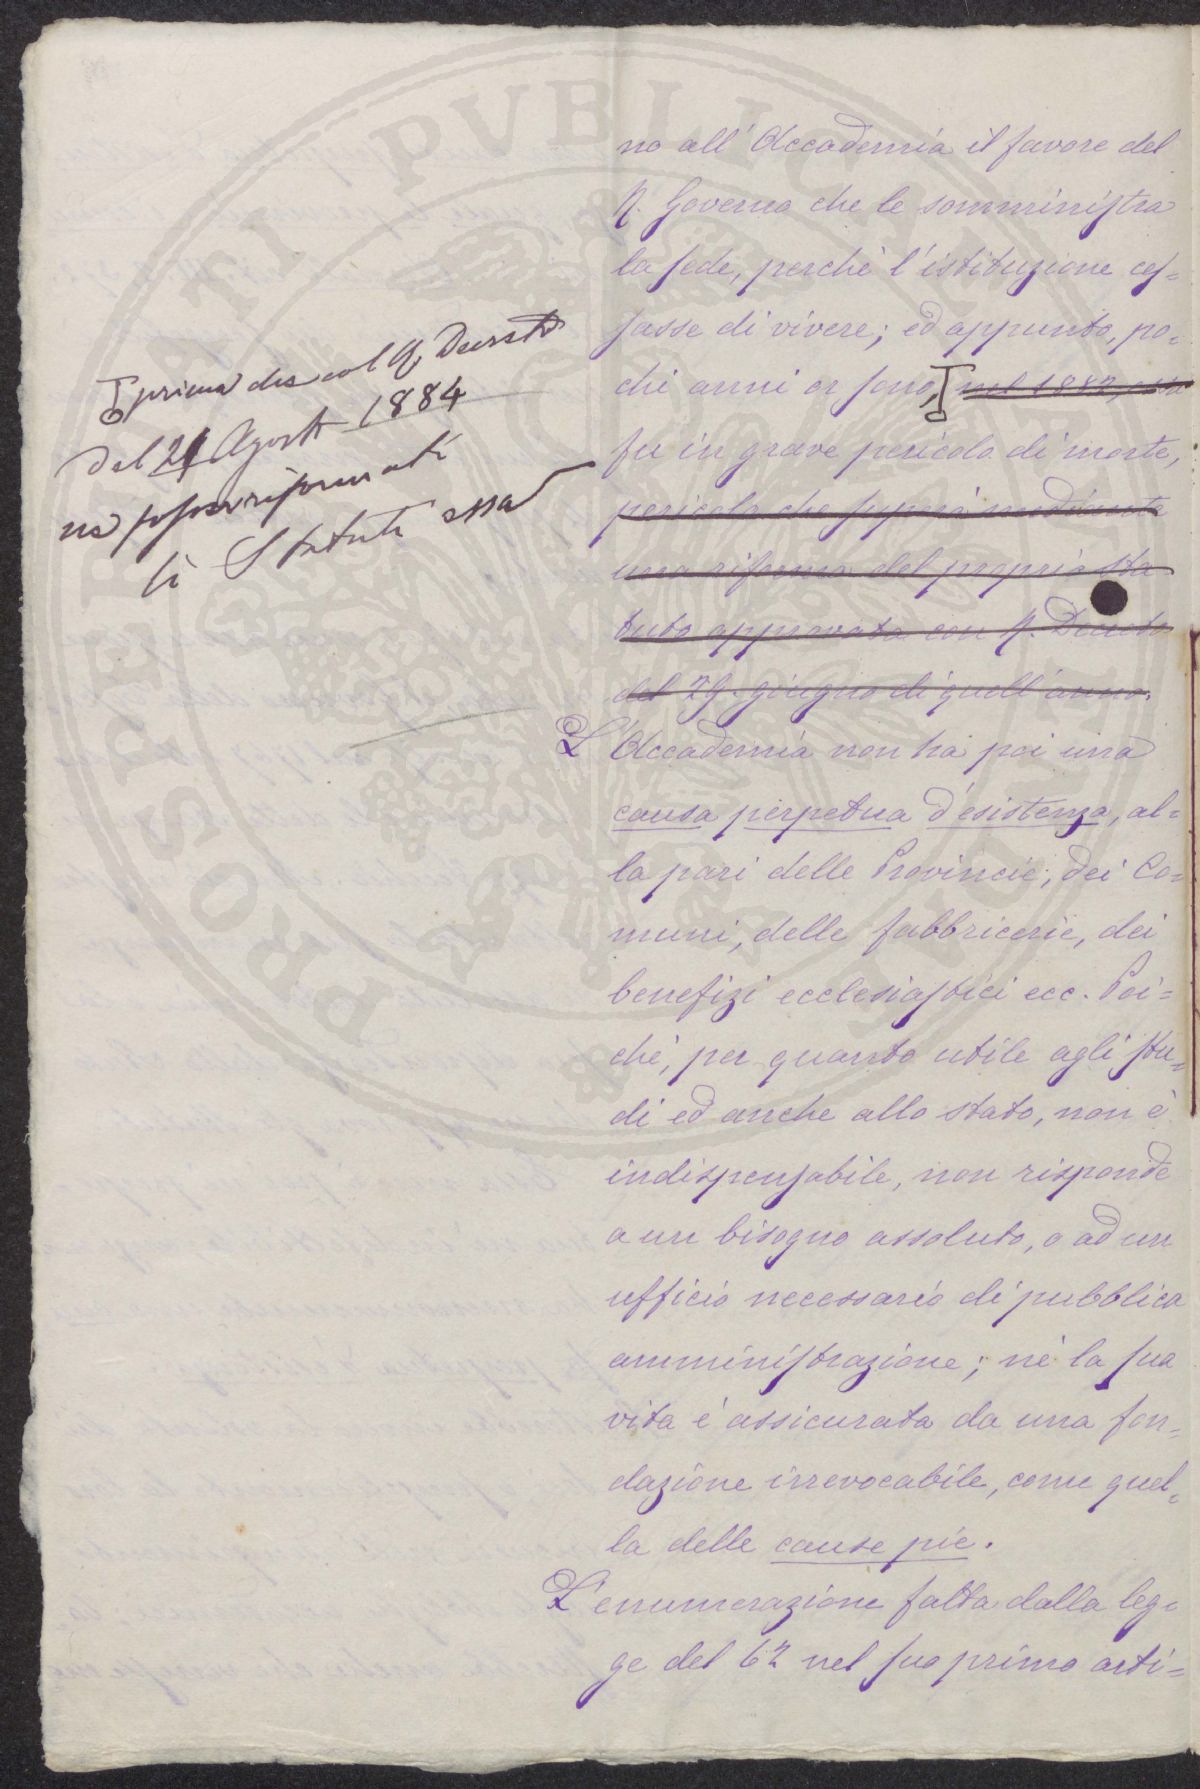 PROSPERITATI PVBLICAE
no all' Accademia il favore del
R. Governo che le somministra
la sede, perchè l'istituzione ces=
sasse di vivere; ed appunto, po=
chi anni or sono, nel 1882, essa
fu in grave pericolo di morte,
pericolo che superò mediante
una riforma del proprio sta
tuto approvata con R. Decreto
del 29. giugno di quell'anno.
L'Accademia non ha poi una
causa perpetua d'esistenza, al=
la pari delle Provincie, dei Co=
muni, delle fabbricerie, dei
benefizi ecclesiastici ecc. Poi=
chè, per quanto utile agli stu=
di ed anche allo stato, non è
indispensabile, non risponde
a un bisogno assoluto, o ad un
ufficio necessario di pubblica
amministrazione; nè la sua
vita è assicurata da una fon=
dazione irrevocabile, come quel=
la delle cause pie.
L'enumerazione fatta dalla leg=
ge del 62 nel suo primo arti=
prima che col R. Decreto
del 21 Agosto 1884
ne fosser riformati
li Statuti essa